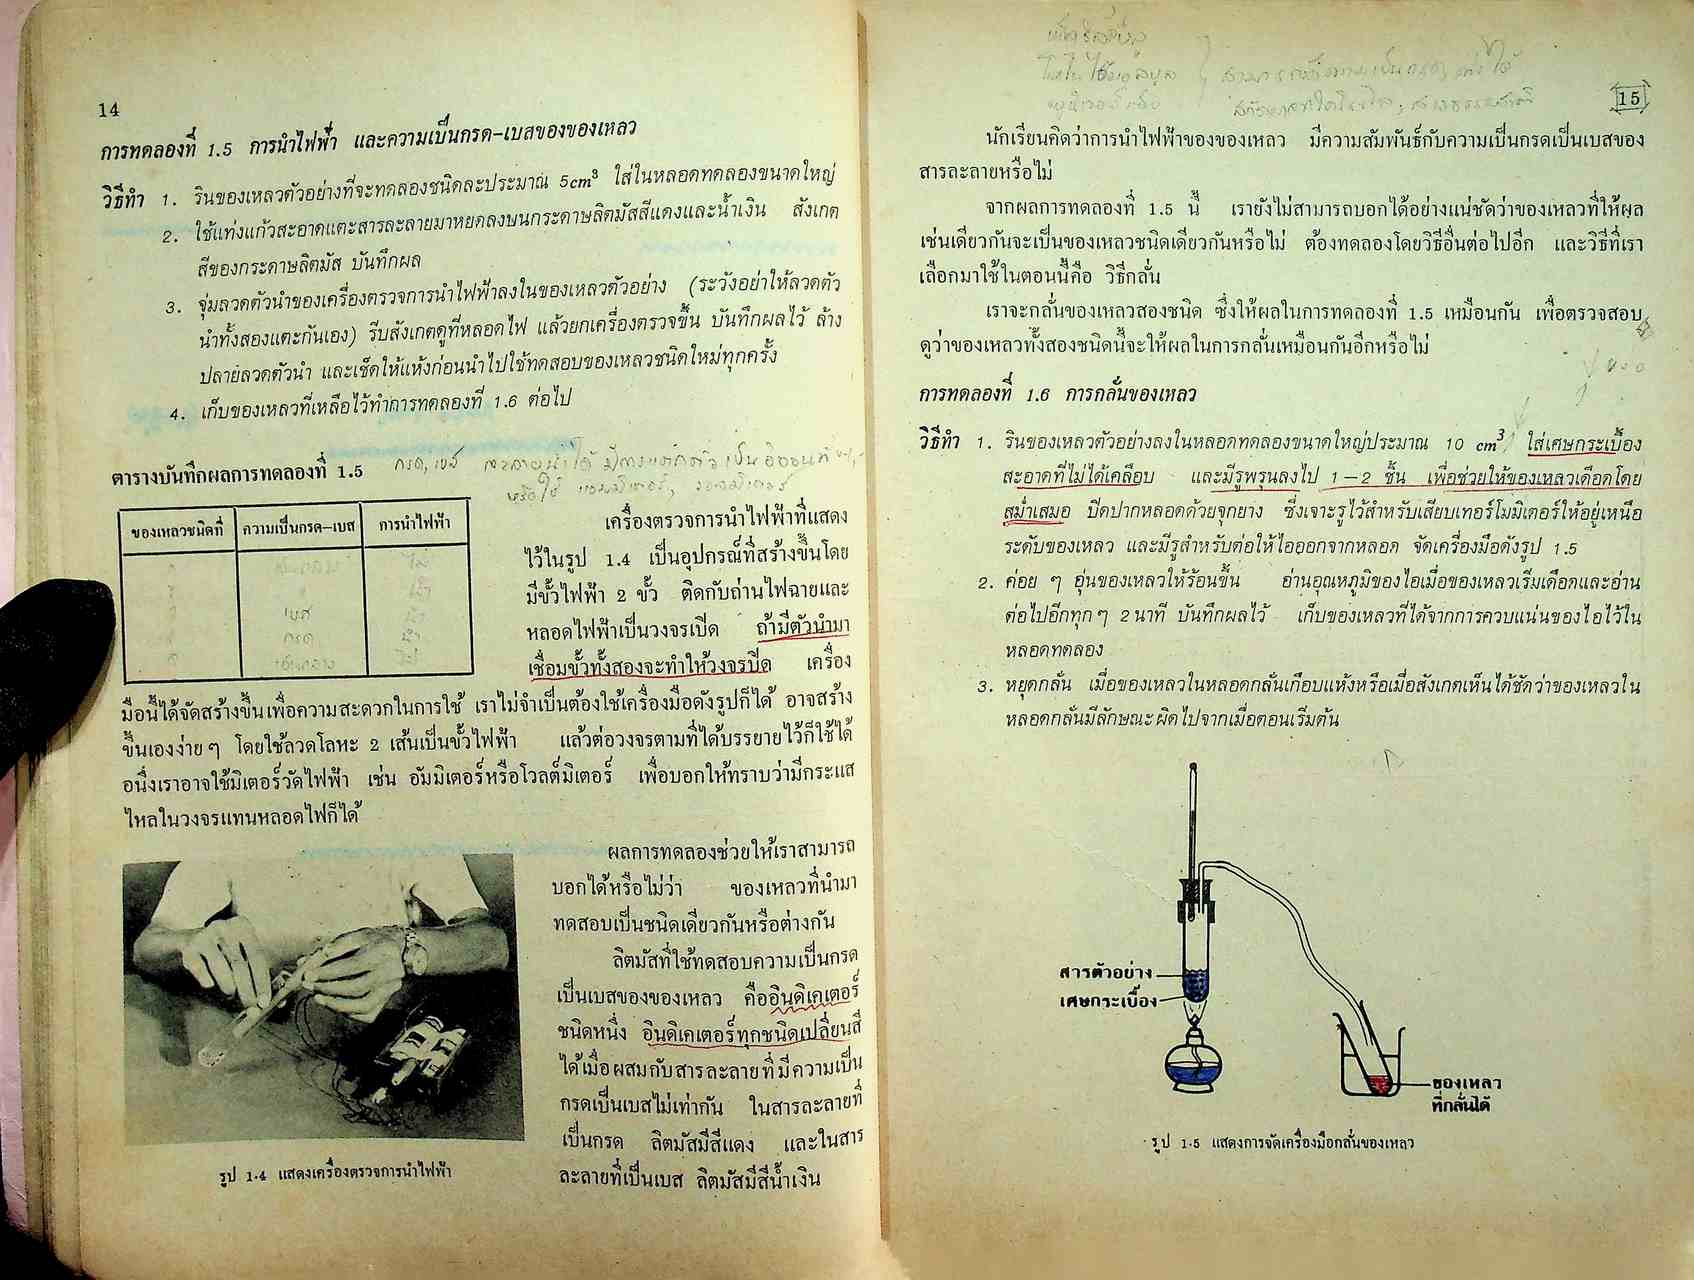 14
การทดลองที่ 1.5 การนำไฟฟ้า และความเป็นกรด-เบสของของเหลว
วิธีทำ 1. รินของเหลวตัวอย่างที่จะทดลองชนิดละประมาณ 5cm³ ใส่ในหลอดทดลองขนาดใหญ่
2. ใช้แท่งแก้วสะอาดแตะสารละลายมาหยดลงบนกระดาษลิตมัสสีแดงและน้ำเงิน สังเกต
สีของกระดาษลิตมัส บันทึกผล
3. จุ่มลวดตัวนำของเครื่องตรวจการนำไฟฟ้าลงในของเหลวตัวอย่าง (ระวังอย่าให้ลวดตัว
นำทั้งสองแตะกันเอง) รีบสังเกตดูที่หลอดไฟ แล้วยกเครื่องตรวจขึ้น บันทึกผลไว้ ล้าง
ปลายลวดตัวนำ และเช็ดให้แห้งก่อนนำไปใช้ทดสอบของเหลวชนิดใหม่ทุกครั้ง
4. เก็บของเหลวที่เหลือไว้ทำการทดลองที่ 1.6 ต่อไป
ตารางบันทึกผลการทดลองที่ 1.5
ของเหลวชนิดที่ ความเป็นกรด-เบส การนำไฟฟ้า
เบส
กรด
เครื่องตรวจการนำไฟฟ้าที่แสดง
ไว้ในรูป 1.4 เป็นอุปกรณ์ที่สร้างขึ้นโดย
มีขั้วไฟฟ้า 2 ขั้ว ติดกับถ่านไฟฉายและ
หลอดไฟฟ้าเป็นวงจรเปิด ถ้ามีตัวนำมา
เชื่อมขั้วทั้งสองจะทำให้วงจรปิด เครื่อง
มือนี้ได้จัดสร้างขึ้นเพื่อความสะดวกในการใช้ เราไม่จำเป็นต้องใช้เครื่องมือดังรูปก็ได้ อาจสร้าง
ขึ้นเองง่ายๆ โดยใช้ลวดโลหะ 2 เส้นเป็นขั้วไฟฟ้า แล้วต่อวงจรตามที่ได้บรรยายไว้ก็ใช้ได้
อนึ่งเราอาจใช้มิเตอร์วัดไฟฟ้า เช่น อัมมิเตอร์หรือโวลต์มิเตอร์ เพื่อบอกให้ทราบว่ามีกระแส
ไหลในวงจรแทนหลอดไฟก็ได้
ผลการทดลองช่วยให้เราสามารถ
บอกได้หรือไม่ว่า ของเหลวที่นำมา
ทดสอบเป็นชนิดเดียวกันหรือต่างกัน
ลิตมัสที่ใช้ทดสอบความเป็นกรด
เป็นเบสของของเหลว คืออินดิเคเตอร์
ชนิดหนึ่ง อินดิเคเตอร์ทุกชนิดเปลี่ยนสี
ได้เมื่อผสมกับสารละลายที่มีความเป็น
กรดเป็นเบสไม่เท่ากัน ในสารละลายที่
เป็นกรด ลิตมัสมีสีแดง และในสาร
ละลายที่เป็นเบส ลิตมัสมีสีน้ำเงิน
รูป 1.4 แสดงเครื่องตรวจการนำไฟฟ้า
15
นักเรียนคิดว่าการนำไฟฟ้าของของเหลว มีความสัมพันธ์กับความเป็นกรดเป็นเบสของ
สารละลายหรือไม่
จากผลการทดลองที่ 1.5 นี้ เรายังไม่สามารถบอกได้อย่างแน่ชัดว่าของเหลวที่ให้ผล
เช่นเดียวกันจะเป็นของเหลวชนิดเดียวกันหรือไม่ ต้องทดลองโดยวิธีอื่นต่อไปอีก และวิธีที่เรา
เลือกมาใช้ในตอนนี้คือ วิธีกลั่น
เราจะกลั่นของเหลวสองชนิด ซึ่งให้ผลในการทดลองที่ 1.5 เหมือนกัน เพื่อตรวจสอบ
ดูว่าของเหลวทั้งสองชนิดนี้จะให้ผลในการกลั่นเหมือนกันอีกหรือไม่
การทดลองที่ 1.6 การกลั่นของเหลว
วิธีทำ 1. รินของเหลวตัวอย่างลงในหลอดทดลองขนาดใหญ่ประมาณ 10 cm³ ใส่เศษกระเบื้อง
สะอาดที่ไม่ได้เคลือบ และมีรูพรุนลงไป 1-2 ชิ้น เพื่อช่วยให้ของเหลวเดือดโดย
สม่ำเสมอ ปิดปากหลอดด้วยจุกยาง ซึ่งเจาะรูไว้สำหรับเสียบเทอร์โมมิเตอร์ให้อยู่เหนือ
ระดับของเหลว และมีรูสำหรับต่อให้ไอออกจากหลอด จัดเครื่องมือดังรูป 1.5
2. ค่อย ๆ อุ่นของเหลวให้ร้อนขึ้น อ่านอุณหภูมิของไอเมื่อของเหลวเริ่มเดือดและอ่าน
ต่อไปอีกทุกๆ 2 นาที บันทึกผลไว้ เก็บของเหลวที่ได้จากการควบแน่นของไอไว้ใน
หลอดทดลอง
3. หยุดกลั่น เมื่อของเหลวในหลอดกลั่นเกือบแห้งหรือเมื่อสังเกตเห็นได้ชัดว่าของเหลวใน
หลอดกลั่นมีลักษณะผิดไปจากเมื่อตอนเริ่มต้น
สารตัวอย่าง
เศษกระเบื้อง
ของเหลว
ที่กลั่นได้
รูป 1.5 แสดงการจัดเครื่องมือกลั่นของเหลว